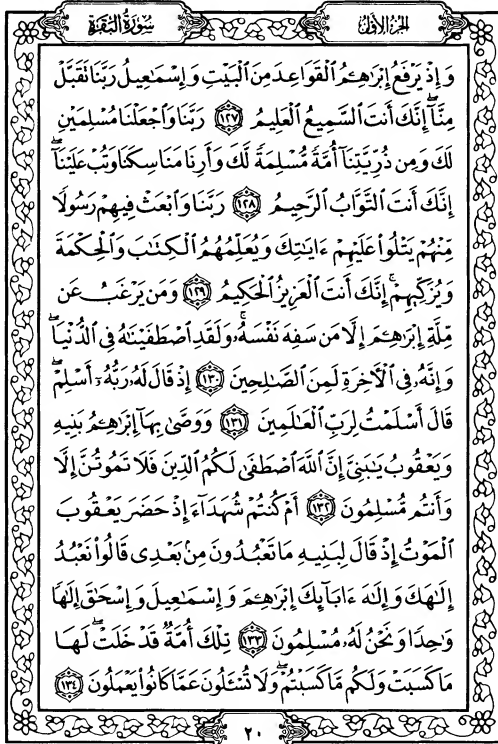 سُورَةُ البَقَرَةِ الجُزْءُ الأَوَّلُ
وَإِذْ يَرْفَعُ إِبْرَٰهِـۧمُ ٱلْقَوَاعِدَ مِنَ ٱلْبَيْتِ وَإِسْمَـٰعِيلُ رَبَّنَا تَقَبَّلْ
مِنَّآ ۖ إِنَّكَ أَنتَ ٱلسَّمِيعُ ٱلْعَلِيمُ ﴿١٢٧﴾ رَبَّنَا وَٱجْعَلْنَا مُسْلِمَيْنِ
لَكَ وَمِن ذُرِّيَّتِنَآ أُمَّةً مُّسْلِمَةً لَّكَ وَأَرِنَا مَنَاسِكَنَا وَتُبْ عَلَيْنَآ ۖ
إِنَّكَ أَنتَ ٱلتَّوَّابُ ٱلرَّحِيمُ ﴿١٢٨﴾ رَبَّنَا وَٱبْعَثْ فِيهِمْ رَسُولًا
مِّنْهُمْ يَتْلُوا۟ عَلَيْهِمْ ءَايَـٰتِكَ وَيُعَلِّمُهُمُ ٱلْكِتَـٰبَ وَٱلْحِكْمَةَ
وَيُزَكِّيهِمْ ۚ إِنَّكَ أَنتَ ٱلْعَزِيزُ ٱلْحَكِيمُ ﴿١٢٩﴾ وَمَن يَرْغَبُ عَن
مِّلَّةِ إِبْرَٰهِـۧمَ إِلَّا مَن سَفِهَ نَفْسَهُۥ ۚ وَلَقَدِ ٱصْطَفَيْنَـٰهُ فِى ٱلدُّنْيَا ۖ
وَإِنَّهُۥ فِى ٱلْـَٔاخِرَةِ لَمِنَ ٱلصَّـٰلِحِينَ ﴿١٣٠﴾ إِذْ قَالَ لَهُۥ رَبُّهُۥٓ أَسْلِمْ ۖ
قَالَ أَسْلَمْتُ لِرَبِّ ٱلْعَـٰلَمِينَ ﴿١٣١﴾ وَوَصَّىٰ بِهَآ إِبْرَٰهِـۧمُ بَنِيهِ
وَيَعْقُوبُ يَـٰبَنِىَّ إِنَّ ٱللَّهَ ٱصْطَفَىٰ لَكُمُ ٱلدِّينَ فَلَا تَمُوتُنَّ إِلَّا
وَأَنتُم مُّسْلِمُونَ ﴿١٣٢﴾ أَمْ كُنتُمْ شُهَدَآءَ إِذْ حَضَرَ يَعْقُوبَ
ٱلْمَوْتُ إِذْ قَالَ لِبَنِيهِ مَا تَعْبُدُونَ مِنۢ بَعْدِى قَالُوا۟ نَعْبُدُ
إِلَـٰهَكَ وَإِلَـٰهَ ءَابَآئِكَ إِبْرَٰهِـۧمَ وَإِسْمَـٰعِيلَ وَإِسْحَـٰقَ إِلَـٰهًا
وَٰحِدًا وَنَحْنُ لَهُۥ مُسْلِمُونَ ﴿١٣٣﴾ تِلْكَ أُمَّةٌ قَدْ خَلَتْ ۖ لَهَا
مَا كَسَبَتْ وَلَكُم مَّا كَسَبْتُمْ ۖ وَلَا تُسْـَٔلُونَ عَمَّا كَانُوا۟ يَعْمَلُونَ ﴿١٣٤﴾
٢٠